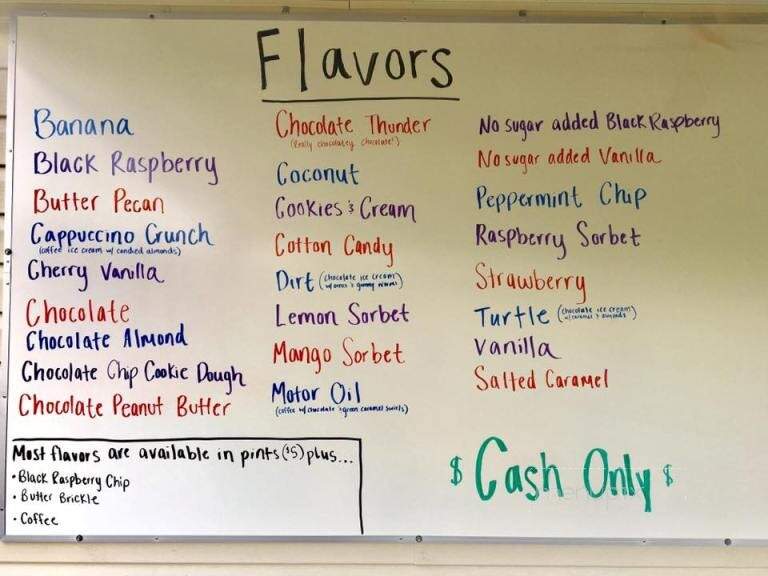 Flavors
Banana
Black Raspberry
Butter Pecan
Cappuccino Crunch
(coffee ice cream w/ candied almonds)
Cherry Vanilla
Chocolate
Chocolate Almond
Chocolate Chip Cookie Dough
Chocolate Peanut Butter
Chocolate Thunder
(Really chocolatey chocolate!)
Coconut
Cookies & Cream
Cotton Candy
Dirt (chocolate ice cream
w/ oreos & gummy worms)
Lemon Sorbet
Mango Sorbet
Motor Oil
(coffee w/ chocolate & green caramel swirls)
No sugar added Black Raspberry
No sugar added Vanilla
Peppermint Chip
Raspberry Sorbet
Strawberry
Turtle (chocolate ice cream
w/ caramel & almonds)
Vanilla
Salted Caramel
Most flavors are available in pints ($5) plus...
• Black Raspberry Chip
• Butter Brickle
• Coffee
$ Cash Only $